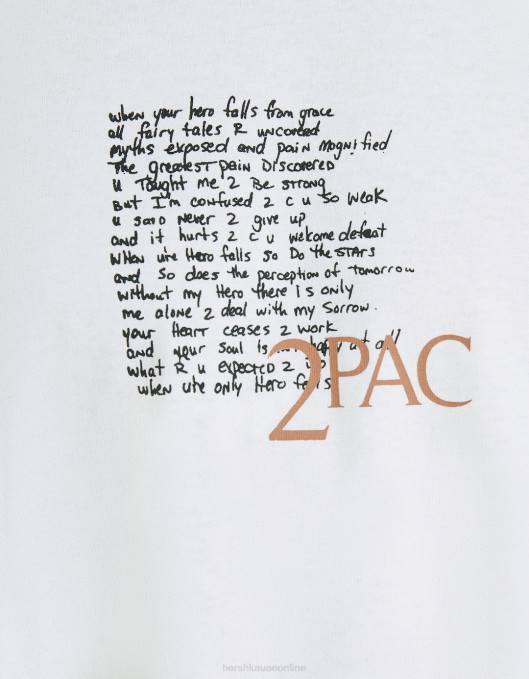 when your hero falls from grace
all fairy tales R uncovered
myths exposed and pain magnified
The greatest pain Discovered
u Taught me 2 Be strong
But I'm confused 2 c u so weak
u said never 2 give up
and it hurts 2 c u welcome defeat
when ure Hero falls so Do the STARS
and so does the perception of tomorrow
without my Hero there is only
me alone 2 deal with my Sorrow.
your Heart ceases 2 work
and your soul is not happy at all
what R u expected 2 do
when ure only Hero falls
2PAC
bershkauaeonline